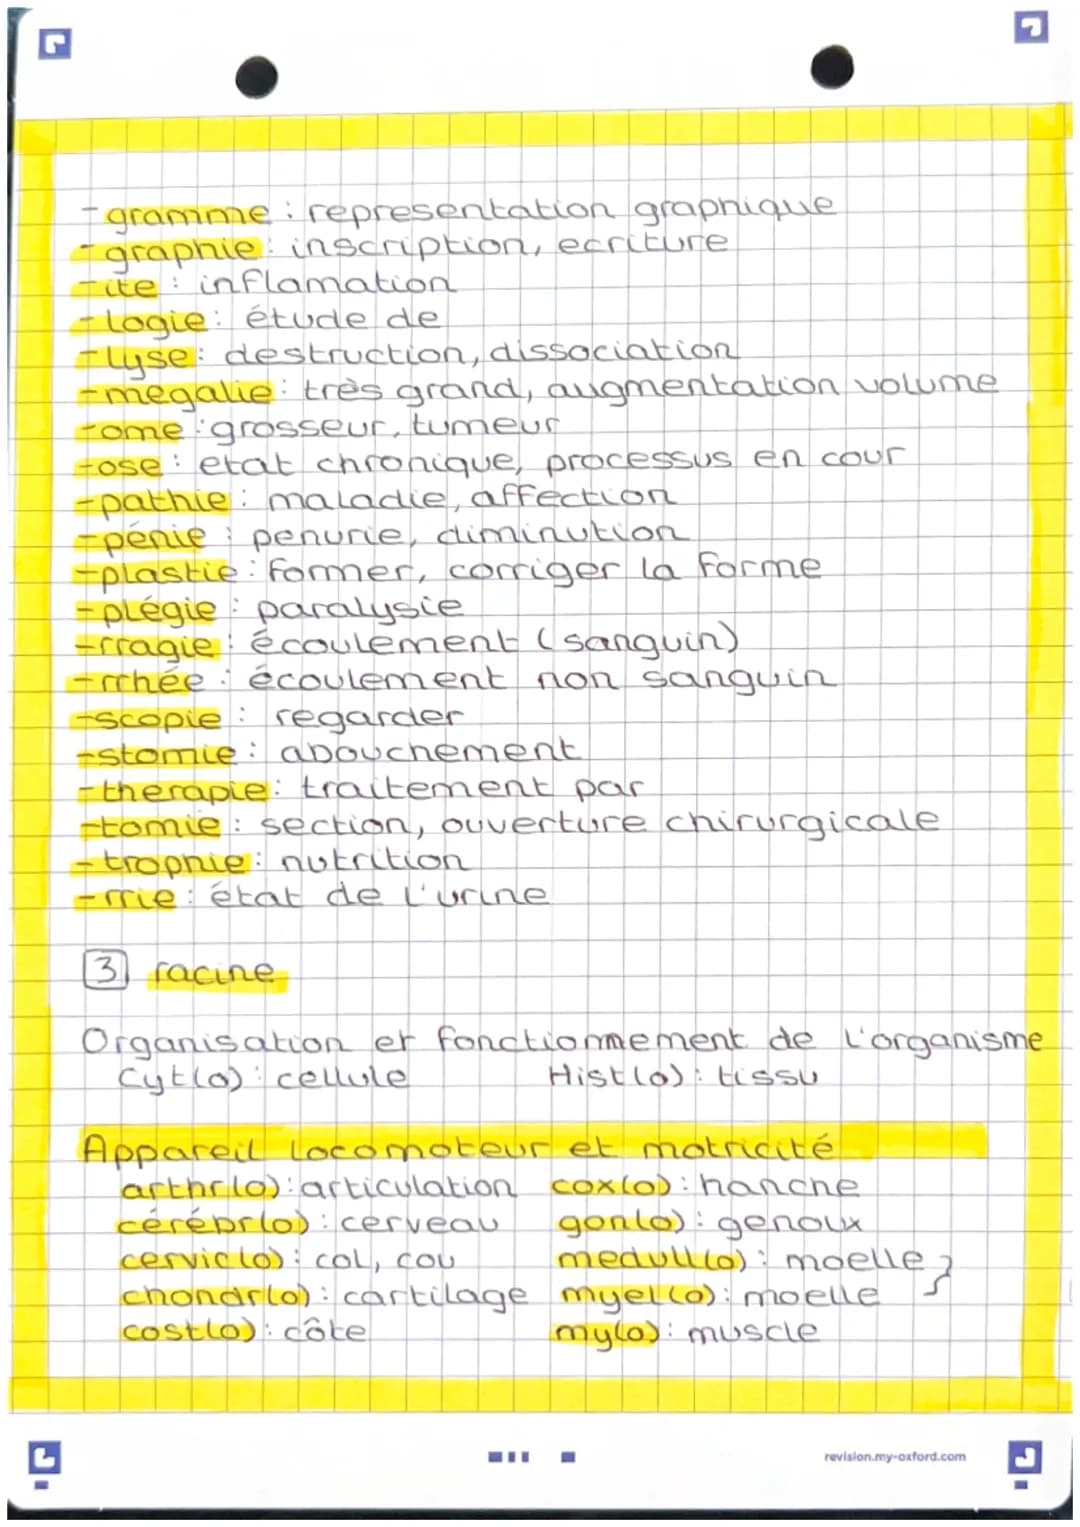 -gramme : representation graphique
-graphie : inscription, ecriture
-ite : inflamation
-logie : étude de
-lyse : destruction, dissociation
-megalie : très grand, augmentation volume
-ome : grosseur, tumeur
-ose : etat chronique, processus en cour
-pathie : maladie, affection
-pénie : penurie, diminution
-plastie : former, corriger la forme
-plégie : paralysie
-rragie : écoulement (sanguin)
-rrhée : écoulement non sanguin
-scopie : regarder
-stomie : abouchement
-therapie : traitement par
-tomie : section, ouverture chirurgicale
-trophie : nutrition
-rrie : état de l'urine
3 racine
Organisation et fonctionnement de l'organisme
Cyt(o) : cellule Hist(o) : tissu
Appareil locomoteur et motricité
arthr(o) : articulation cox(o) : hanche
cérébr(o) : cerveau gon(o) : genoux
cervic(o) : col, cou medull(o) : moelle }
chondr(o) : cartilage myel(o) : moelle
cost(o) : côte my(o) : muscle
revision.my-oxford.com